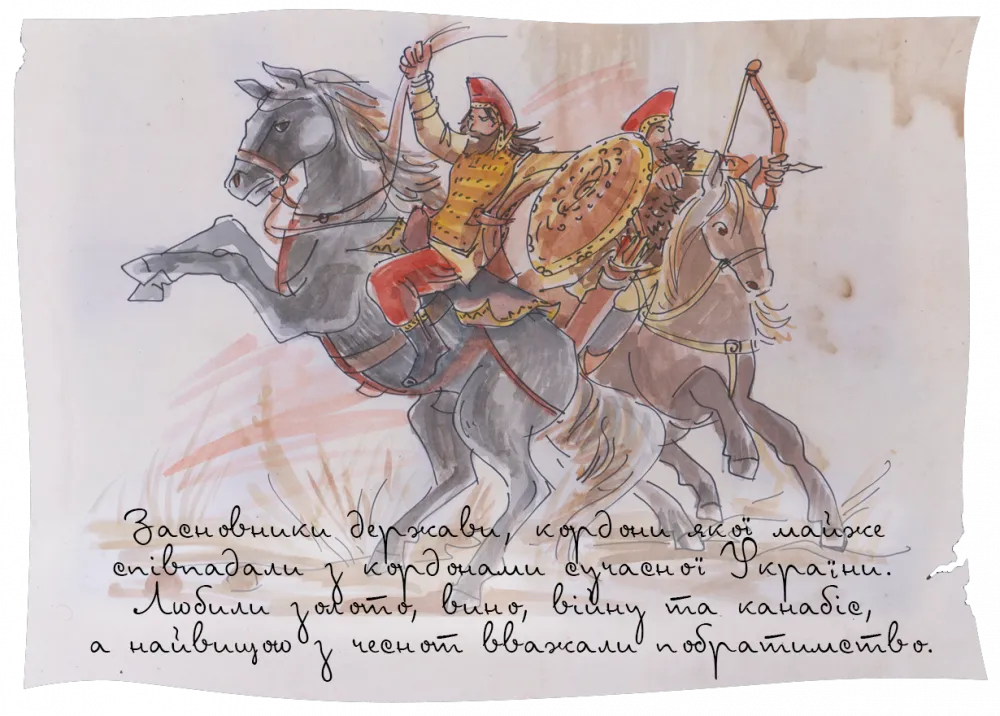 Засновники держави, кордони якої майже
співпадали з кордонами сучасної України.
Любили золото, вино, війну та канабіс,
а найвищою з чеснот вважали побратимство.